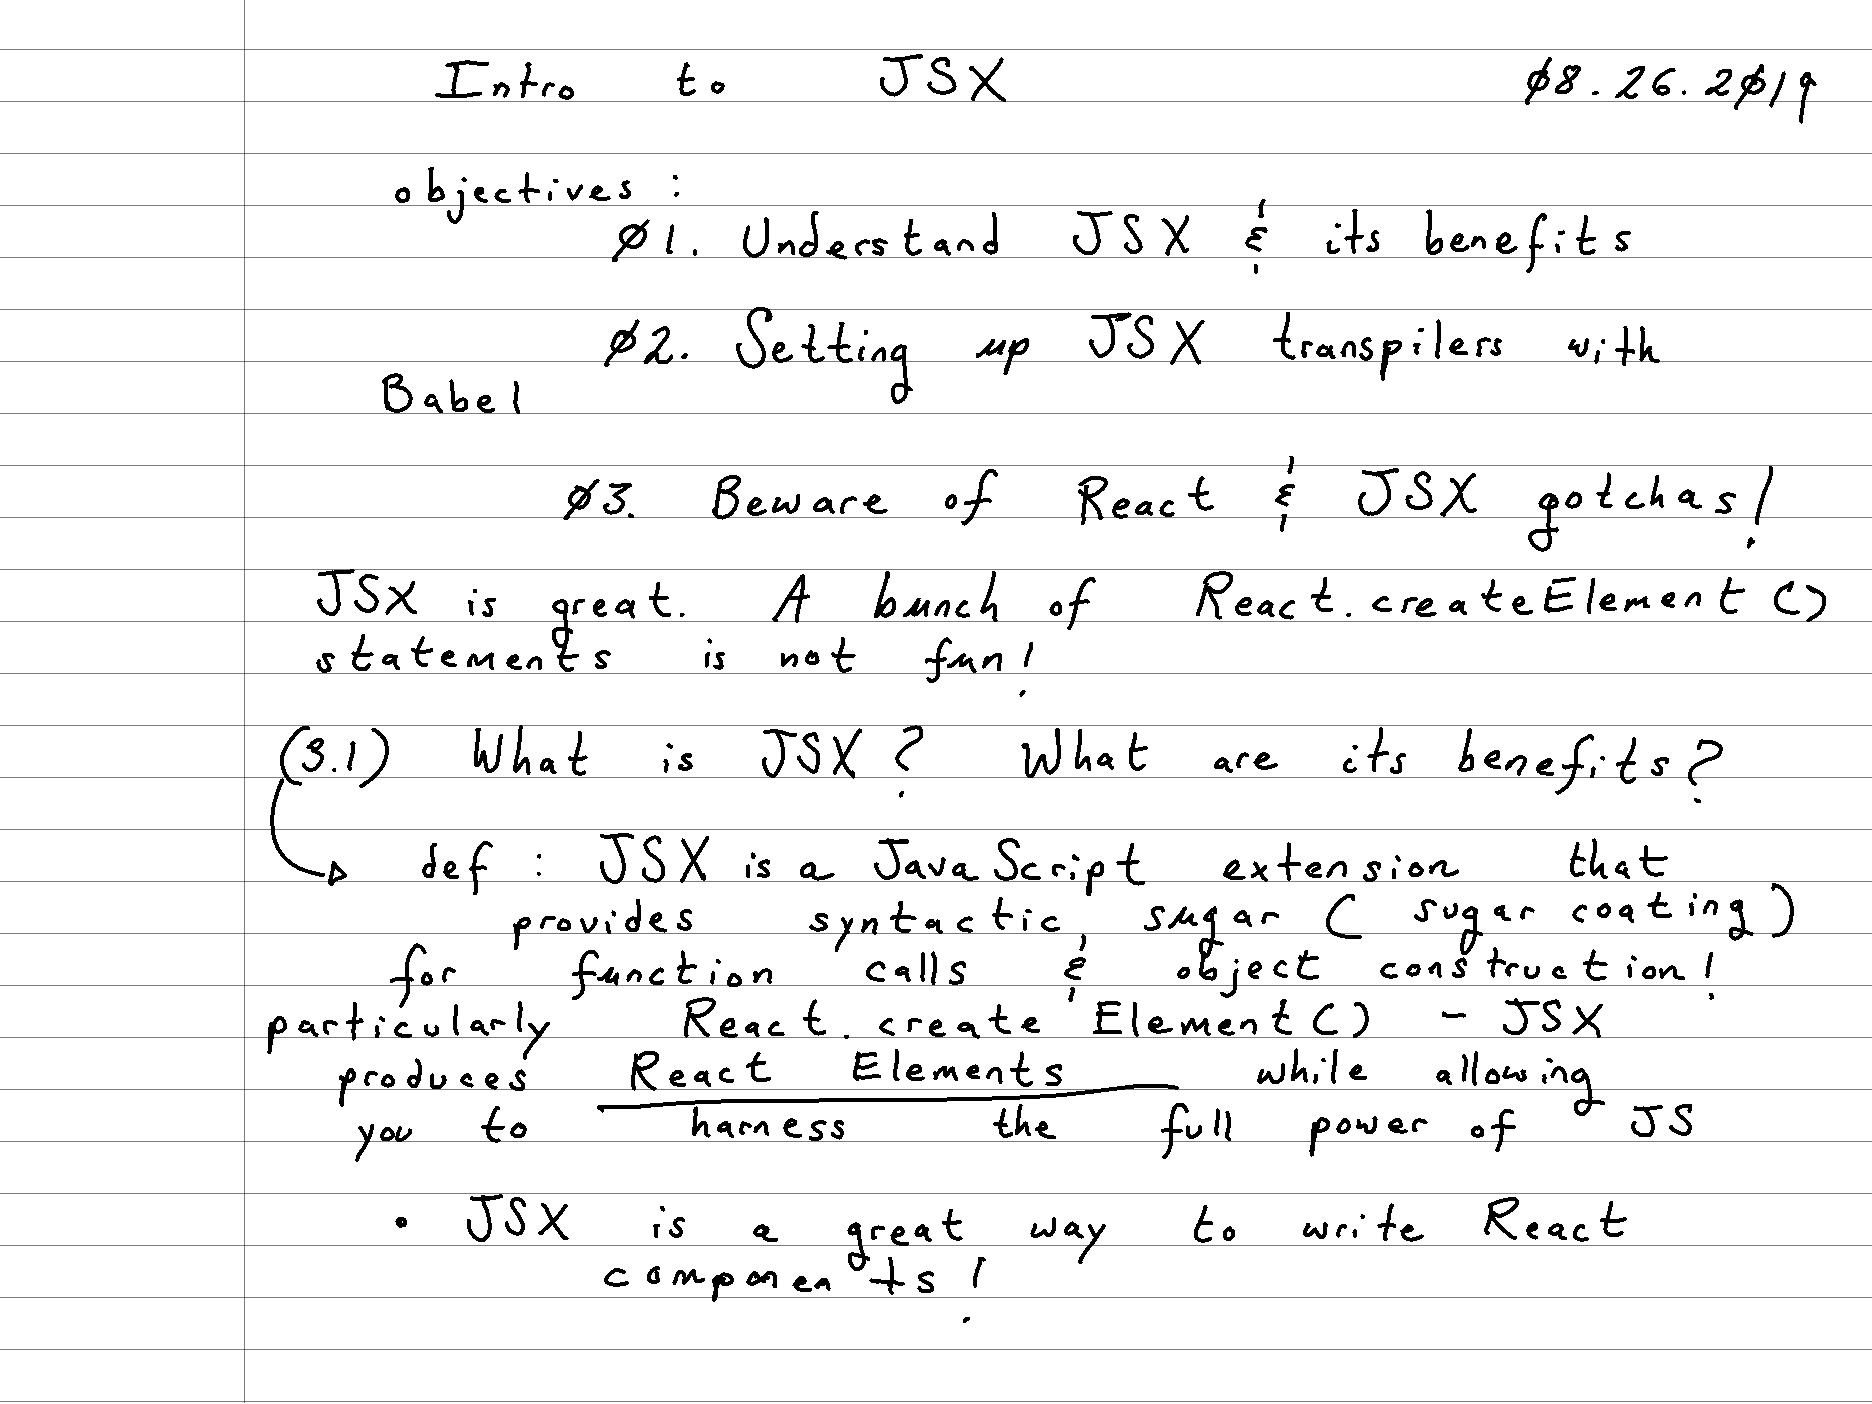 Intro to JSX 08.26.2019
objectives :
01. Understand JSX & its benefits
02. Setting up JSX transpilers with
Babel
03. Beware of React & JSX gotchas!
JSX is great. A bunch of React.createElement()
statements is not fun!
(3.1) What is JSX? What are its benefits?
def : JSX is a JavaScript extension that
provides syntactic sugar ( sugar coating )
for function calls & object construction!
particularly React.createElement() - JSX
produces React Elements while allowing
you to harness the full power of JS
• JSX is a great way to write React
components!